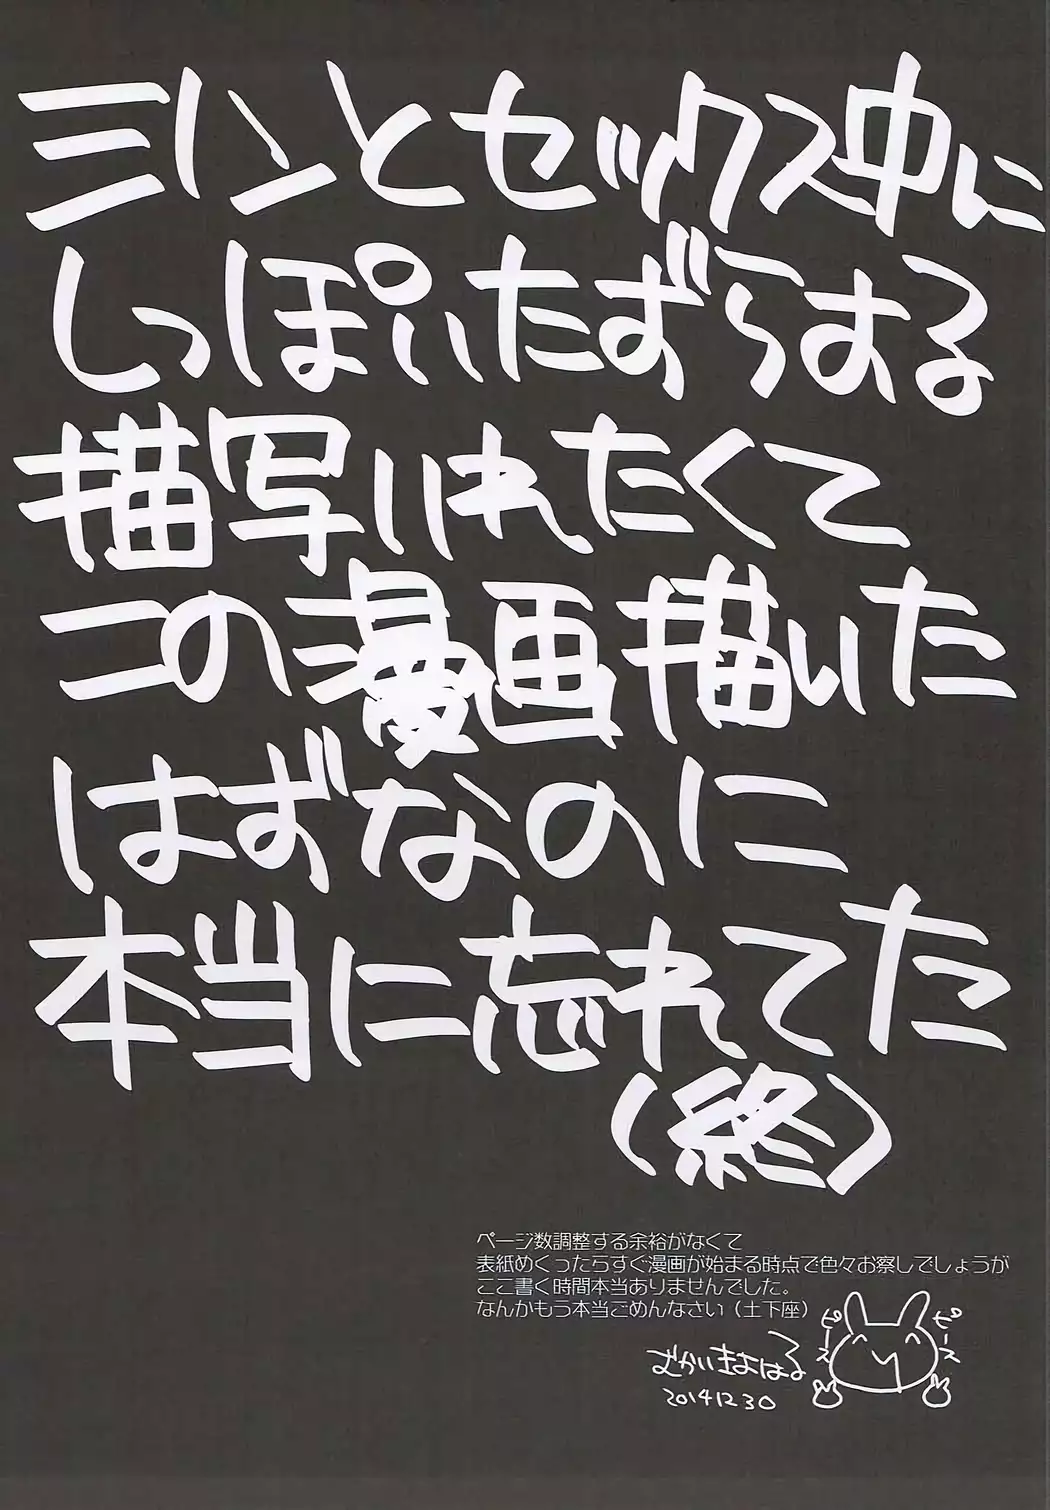 ミリンとセックス中に
しっぽいたずらする
描写いれたくて
この漫画描いた
はずなのに
本当に忘れてた
（終）
ページ数調整する余裕がなくて
表紙めくったらすぐ漫画が始まる時点で色々お察しでしょうが
ここ書く時間本当ありませんでした。
なんかもう本当ごめんなさい（土下座）
ピース
ピース
むかいきよはる
2014 12 30